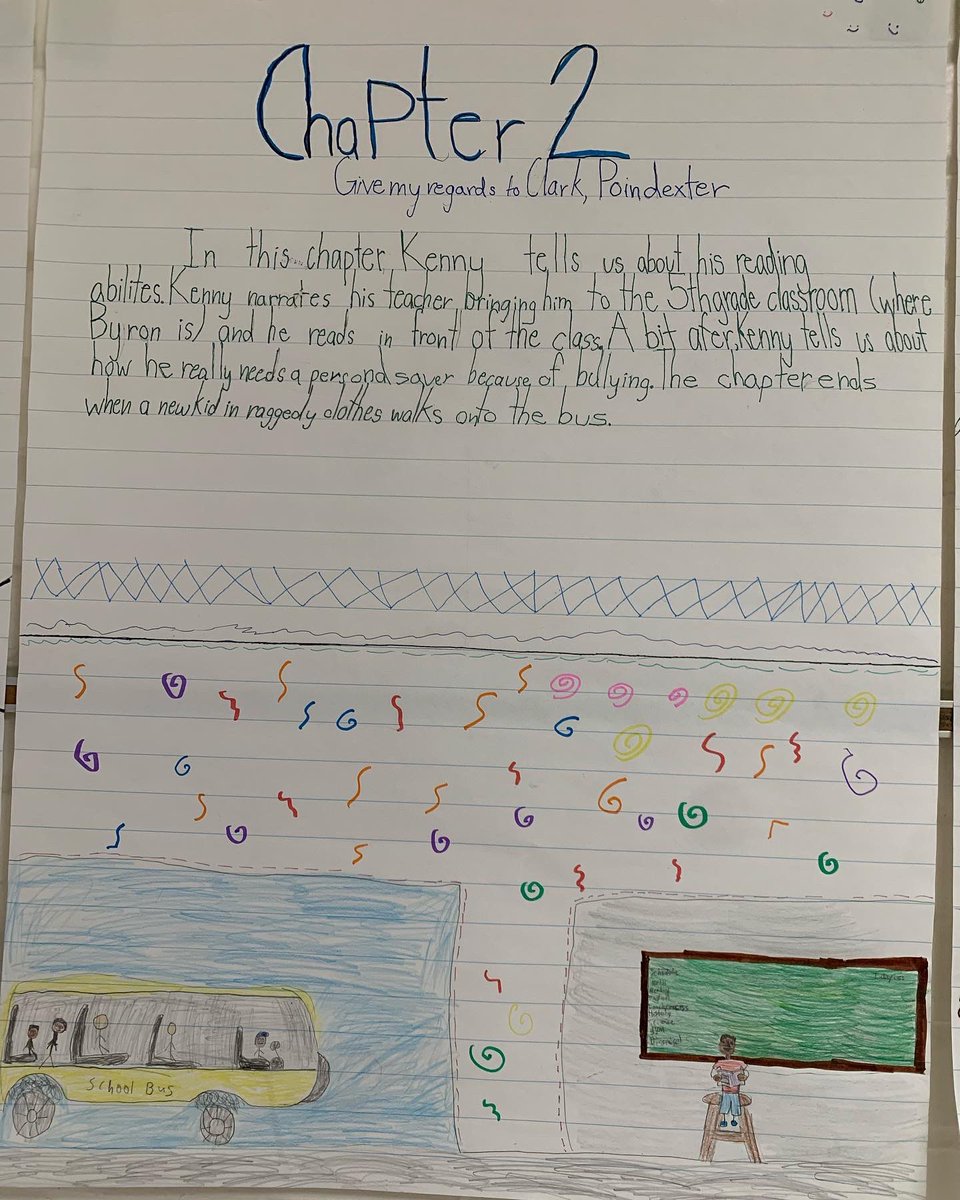 Chapter 2
Give my regards to Clark, Poindexter
In this chapter, Kenny tells us about his reading
abilites. Kenny narrates his teacher bringing him to the 5th grade classroom (where
Byron is) and he reads in front of the class. A bit after, Kenny tells us about
how he really needs a personal saver because of bullying. The chapter ends
when a new kid in raggedy clothes walks onto the bus.
School Bus